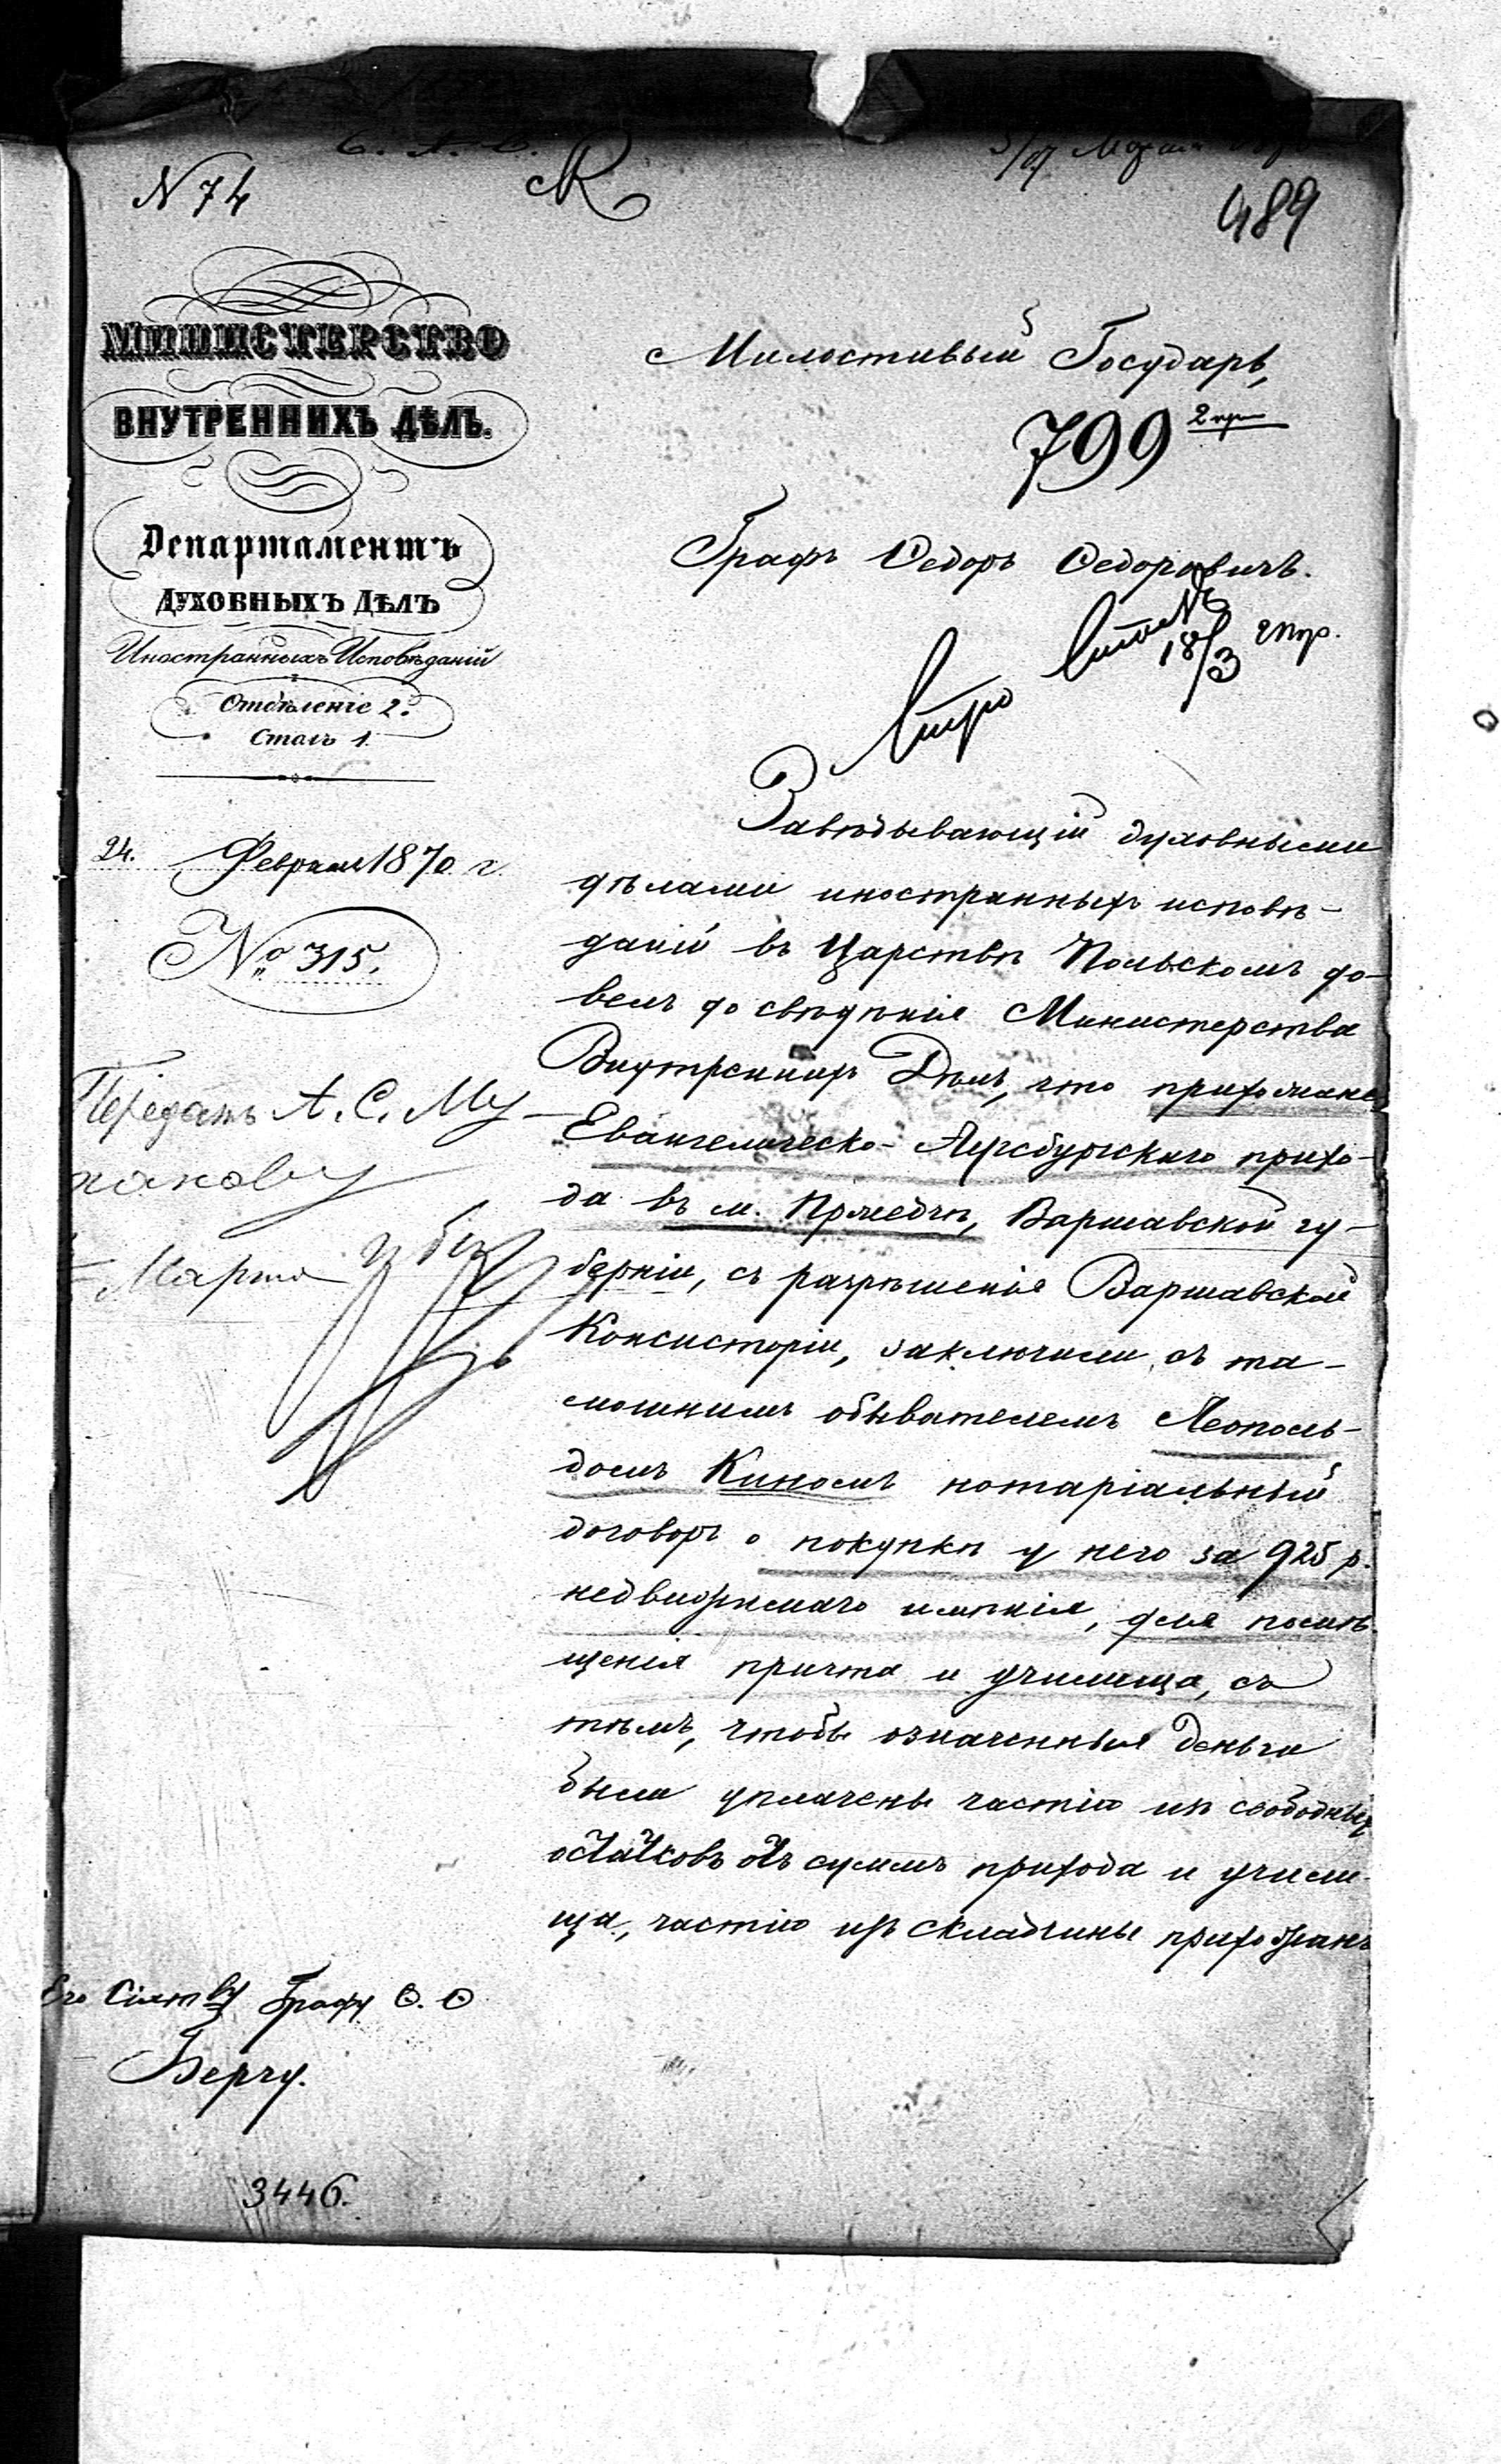 N 74
489
МИНИСТЕРСТВО
ВНУТРЕННИХЪ ДѢЛЪ.
Департаментъ
ДУХОВНЫХЪ ДѢЛЪ
Иностранныхъ Исповѣданій
Отдѣленіе 2.
Столъ 1.
24. Февраля 1870 г.
№ 315.
Передать А. С. Му-
ханову
Марта
Его Сіят-ву Графу Ѳ. Ѳ
Бергу.
3446.
Милостивый Государь,
799
Графъ Ѳедоръ Ѳедоровичъ.
18/3
Завѣдывающій духовными
дѣлами иностранныхъ исповѣ-
даній въ Царствѣ Польскомъ до-
велъ до свѣдѣнія Министерства
Внутреннихъ Дѣлъ, что прихожане
Евангелическо-Аугсбургскаго прихо-
да въ м. Пржедчѣ, Варшавской гу-
берніи, съ разрѣшенія Варшавской
Консисторіи, заключили съ та-
мошнимъ обывателемъ Леополь-
домъ Киномъ нотаріальный
договоръ о покупкѣ у него за 925 р.
недвижимаго имѣнія, для помѣ-
щенія причта и училища, съ
тѣмъ, чтобы означенныя деньги
были уплачены частію изъ свободныхъ
остатковъ отъ суммъ прихода и учили-
ща, частію изъ складчины прихожанъ